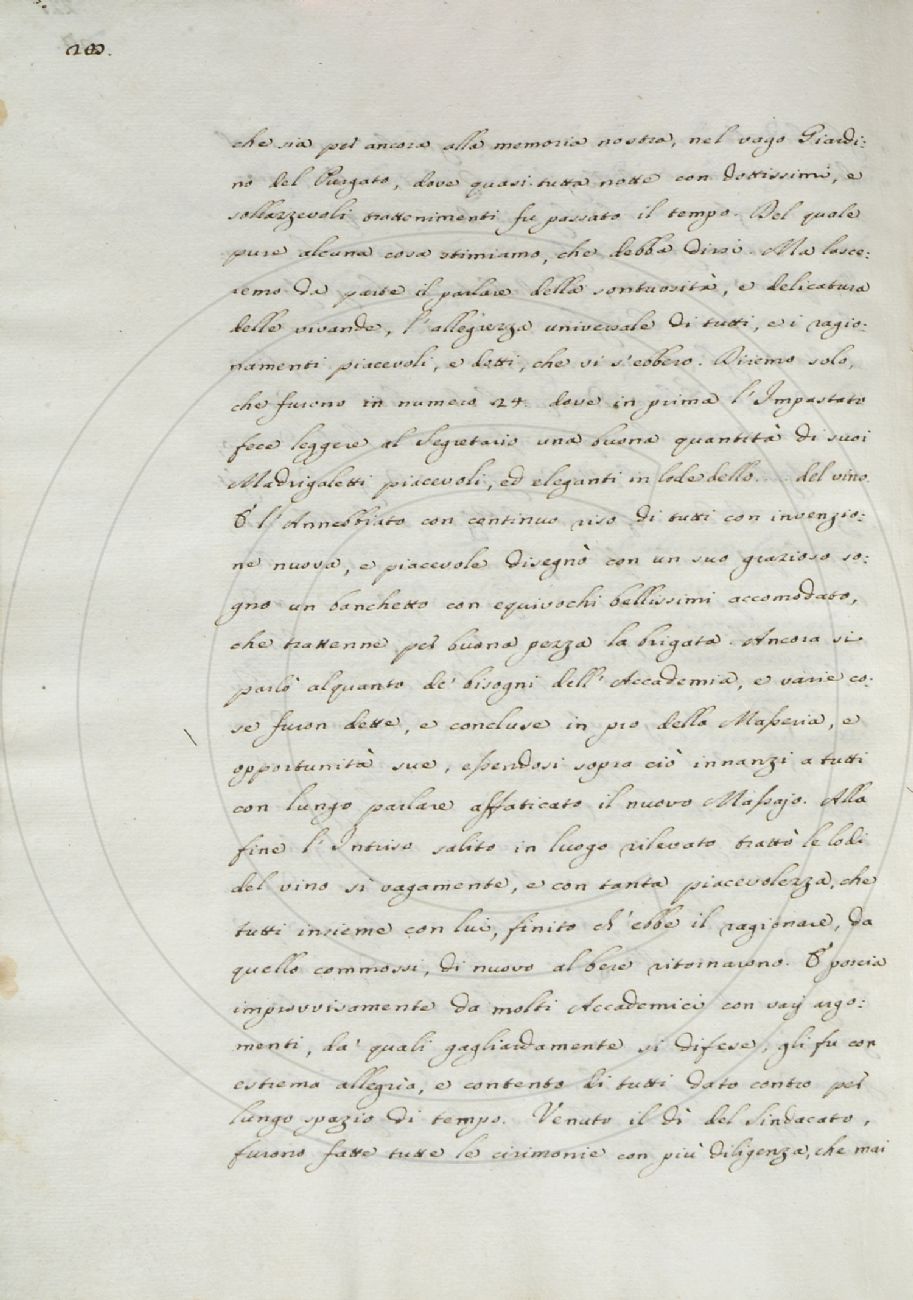 200.
che sia per ancora alla memoria nostra, nel vago Giardi:
no del Purgato, dove quasi tutta notte con dottissimi, e
sollazzevoli trattenimenti fu passato il tempo. Del quale
pure alcuna cosa stimiamo, che debba dirsi. Ma lasce:
remo da parte il parlare della sontuosità, e delicatura
delle vivande, l'allegrezza universale di tutti, e i ragio:
namenti piacevoli, e detti, che vi s'ebbero. Diremo solo,
che furono in numero 24. dove in prima l'Impastato
fece leggere al Segretario una buona quantità di suoi
Madrigaletti piacevoli, ed eleganti in lode dello.... del vino.
E l'Annebbiato con continuo riso di tutti con invenzio:
ne nuova, e piacevole disegnò con un suo grazioso so:
gno un banchetto con equivochi bellissimi accomodato,
che trattenne per buona pezza la brigata. Ancora si
parlò alquanto de' bisogni dell'Accademia, e varie co:
se furon dette, e concluse in pro della Masseria, e
opportunità sue, essendosi sopra ciò innanzi a tutti
con lungo parlare affaticato il nuovo Massajo. Alla
fine l'Intriso salito in luogo rilevato trattò le lodi
del vino sì vagamente, e con tanta piacevolezza, che
tutti insieme con lui, finito ch'ebbe il ragionare, da
quello commossi, di nuovo al bere ritornarono. E poscia
improvvisamente da molti Accademici con varj argo:
menti, da' quali gagliardamente si difese, gli fu con
estrema allegria, e contento di tutti dato contro per
lungo spazio di tempo. Venuto il dì del Sindacato,
furono fatte tutte le cirimonie con più diligenza, che mai